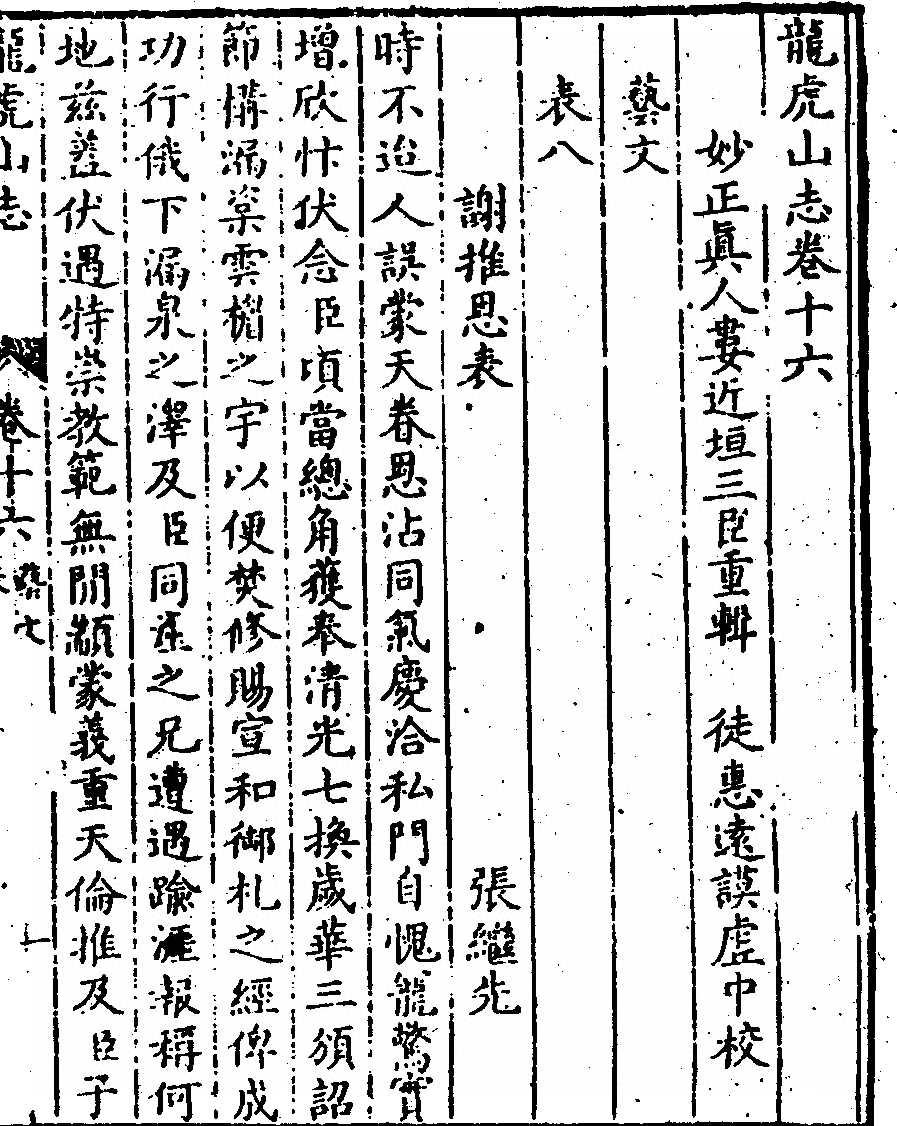 龍虎山志卷十六
妙正眞人婁近垣三臣重輯　徒惠遠謨虛中校
藝文
表八
謝推恩表　張繼先
時不迨人誤蒙天眷恩沾同氣慶洽私門自愧寵驚實
增欣忭伏念臣頃當總角獲奉清光七換歲華三頒詔
節構漏雲楣之宇以便焚修賜宣和御札之經俾成
功行俄下漏泉之澤及臣同產之兄遭遇踰涯報稱何
地茲蓋伏遇特崇教範無間顓蒙義重天倫推及臣子
龍虎山志　卷十六　藝文